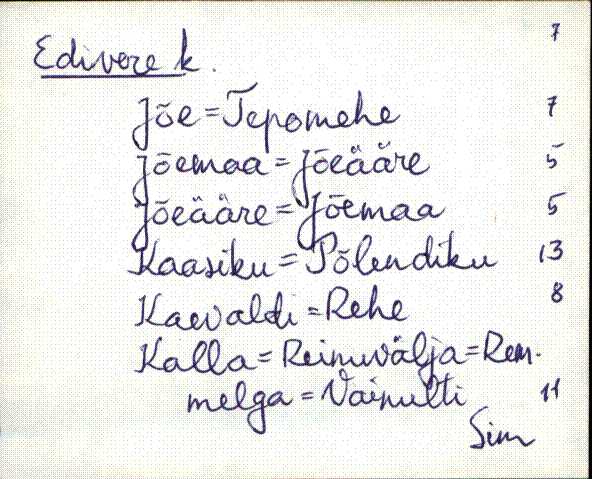 7
Edivere k.
Jõe = Tepomehe 7
Jõemaa = Jõeääre 5
Jõeääre = Jõemaa 5
Kaasiku = Põlendiku 13
Kaevaldi = Rehe 8
Kalla = Reinuvälja = Rem-
melga = Vainulti 11
Sim